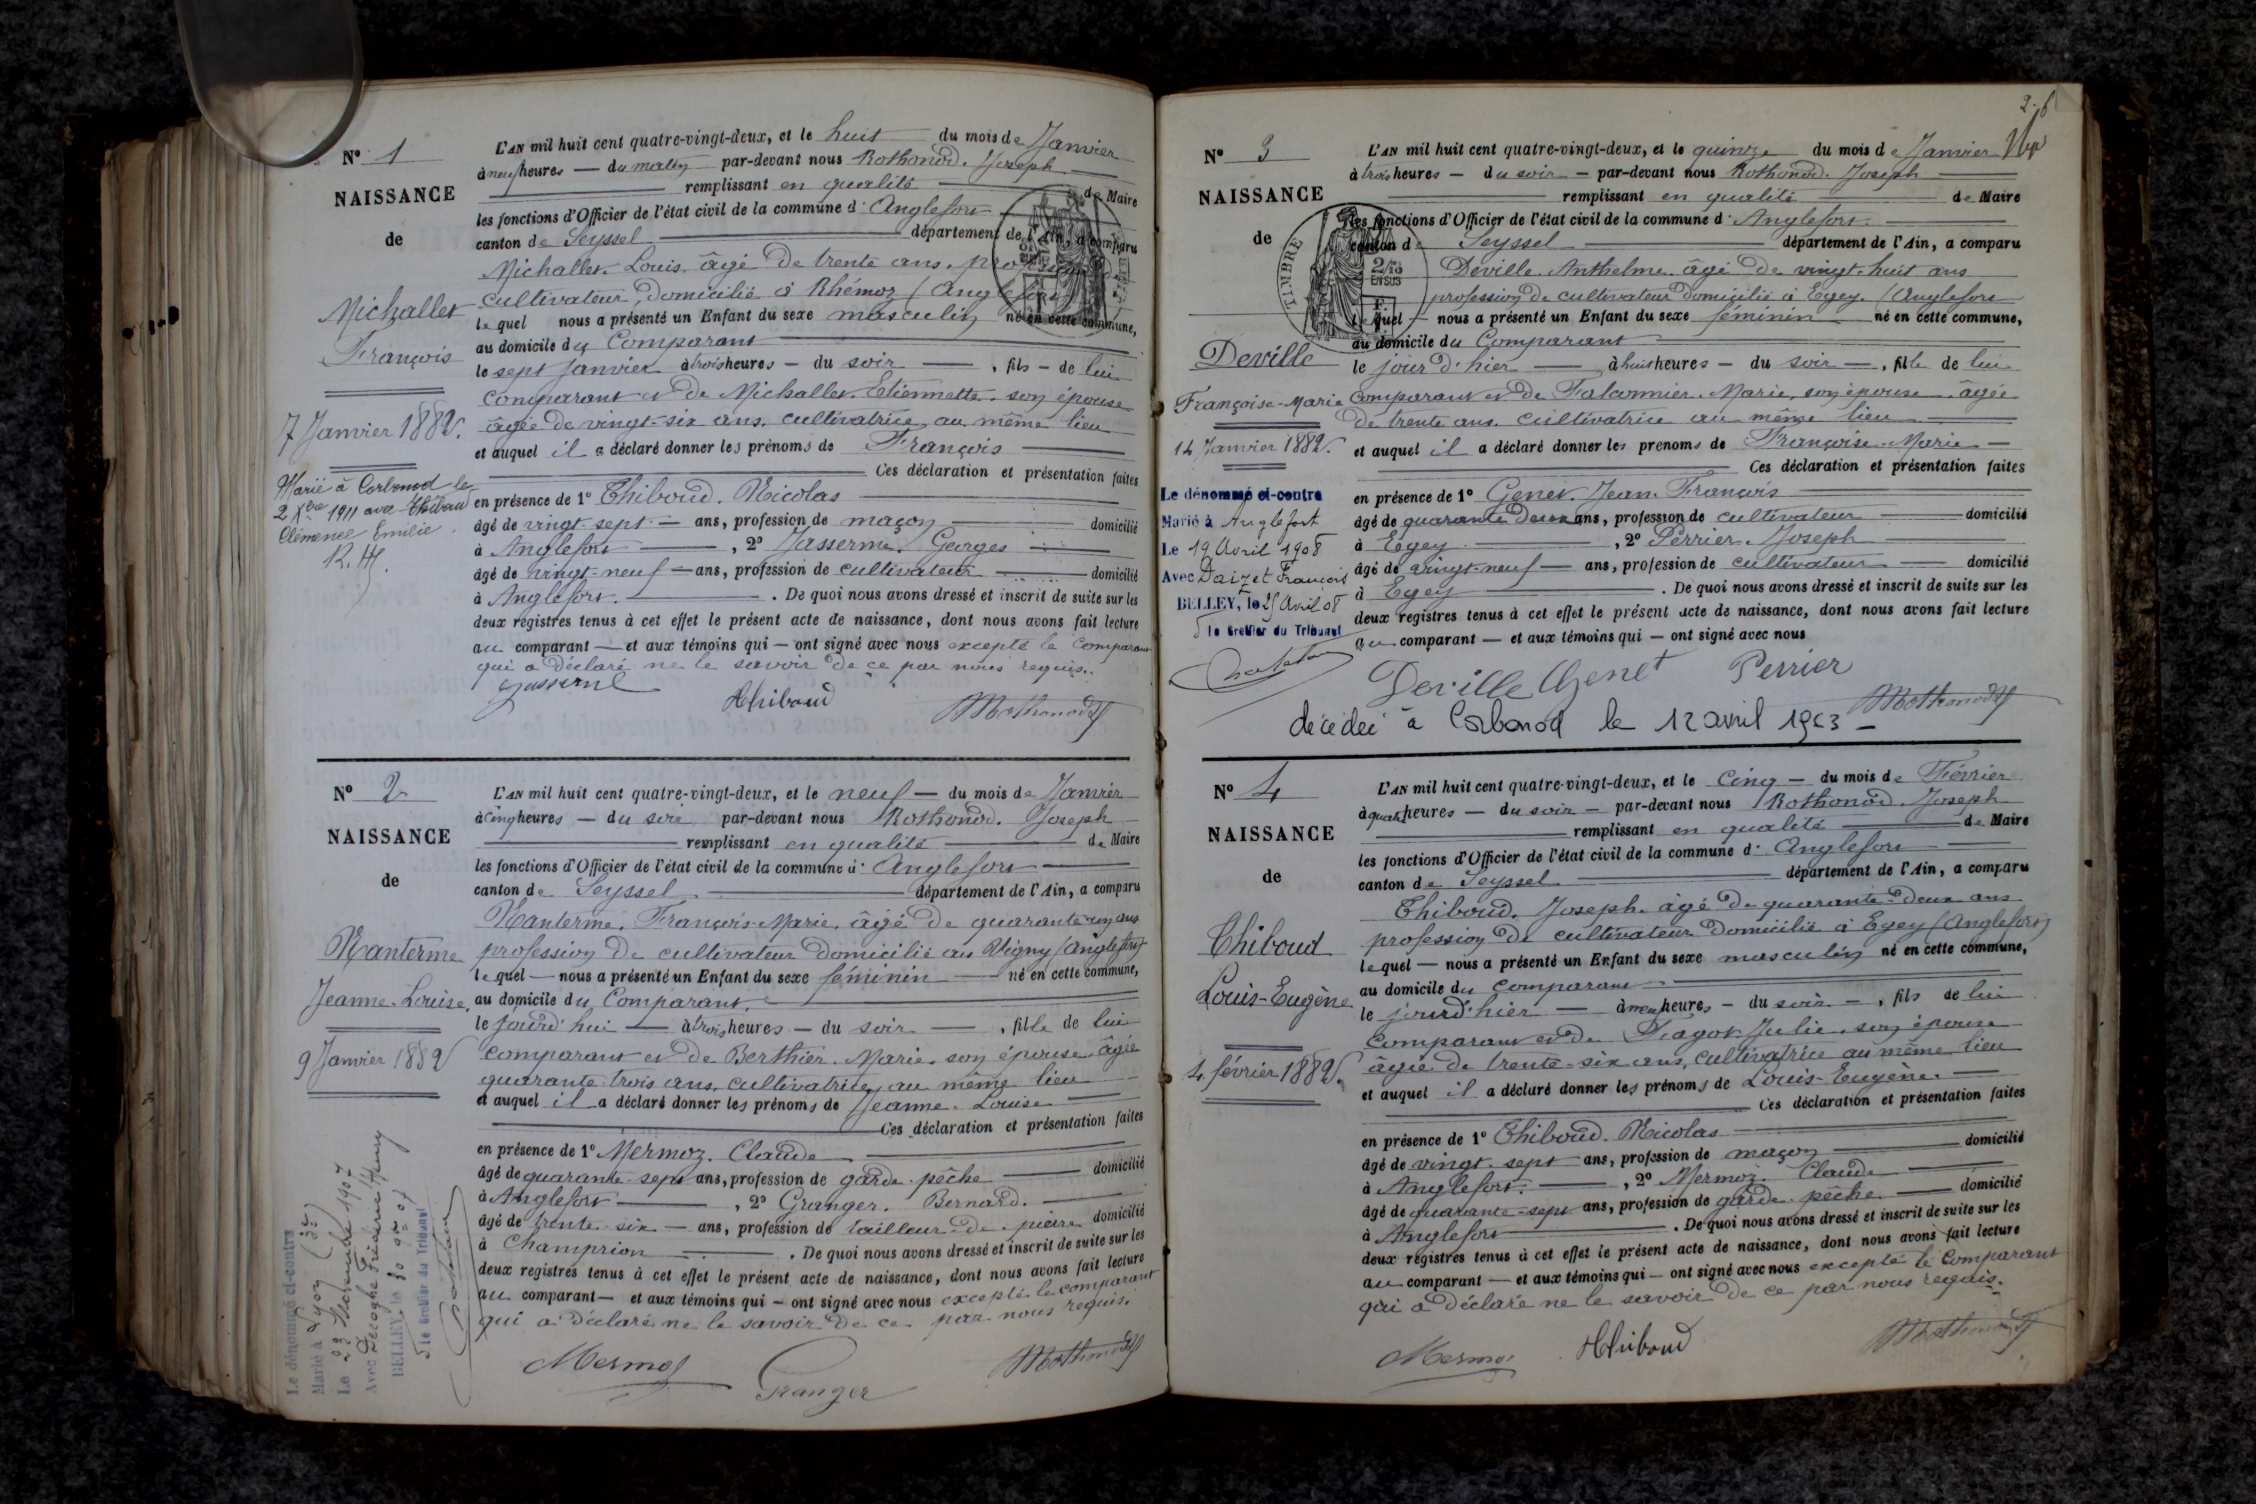 Nº 1
NAISSANCE
de
Michallet
François
7 Janvier 1882.
Marié à Corbonod le
2 Xbre 1911 avec Thiboud
Clémence Emélie.
L'AN mil huit cent quatre-vingt-deux, et le huit du mois de Janvier
à neuf heures — du matin par-devant nous Rothonod. Joseph
remplissant en qualité de Maire
les fonctions d'Officier de l'état civil de la commune d' Anglefort
canton de Seyssel département de l'Ain, a comparu
Michallet. Louis. âgé de trente ans. profession de
cultivateur, domicilié à Rhémoz (Anglefort)
lequel nous a présenté un Enfant du sexe masculin né en cette commune,
au domicile du Comparant
le sept Janvier à trois heures — du soir — , fils — de lui
comparant et de Michallet. Etiennette. son épouse
âgée de vingt-six ans. cultivatrice au même lieu
et auquel il a déclaré donner les prénoms de François
Ces déclaration et présentation faites
en présence de 1º Thiboud. Nicolas
âgé de vingt-sept — ans, profession de maçon domicilié
à Anglefort , 2º Jasserme. Georges
âgé de vingt-neuf — ans, profession de cultivateur domicilié
à Anglefort. . De quoi nous avons dressé et inscrit de suite sur les
deux registres tenus à cet effet le présent acte de naissance, dont nous avons fait lecture
au comparant — et aux témoins qui — ont signé avec nous excepté le Comparant
qui a déclaré ne le savoir de ce par nous requis.
Thiboud
Rothonod
Nº 2
NAISSANCE
de
Nanterme
Jeanne-Louise.
9 Janvier 1882
Le dénommé ci-contre
Marié à Lyon (3e)
Le 28 Novembre 1907
BELLEY, le 30 9bre 07
le Greffier du Tribunal
L'AN mil huit cent quatre-vingt-deux, et le neuf — du mois de Janvier
à cinq heures — du soir par-devant nous Rothonod. Joseph
remplissant en qualité de Maire
les fonctions d'Officier de l'état civil de la commune d' Anglefort
canton de Seyssel département de l'Ain, a comparu
Nanterme. François-Marie. âgé de quarante-un ans
profession de cultivateur domicilié au Vigny (Anglefort)
lequel — nous a présenté un Enfant du sexe féminin né en cette commune,
au domicile du Comparant.
le jourd'hui — à trois heures — du soir — , fille de lui
comparant et de Berthier. Marie. son épouse. âgée
quarante-trois ans. cultivatrice au même lieu
et auquel il a déclaré donner les prénoms de Jeanne. Louise
Ces déclaration et présentation faites
en présence de 1º Mermoz. Claude
âgé de quarante-sept ans, profession de garde-pêche domicilié
à Anglefort , 2º Granger. Bernard.
âgé de trente-six — ans, profession de tailleur de pierre domicilié
à Champrion . De quoi nous avons dressé et inscrit de suite sur les
deux registres tenus à cet effet le présent acte de naissance, dont nous avons fait lecture
au comparant — et aux témoins qui — ont signé avec nous excepté le comparant
qui a déclaré ne le savoir de ce par nous requis.
Mermoz
Granger
Rothonod
Nº 3
NAISSANCE
de
TIMBRE
Deville
Françoise-Marie
14 Janvier 1882.
Le dénommé ci-contre
Marié à Anglefort
Le 19 Avril 1908
Avec Daizet François
BELLEY, le 25 Avril 08
le Greffier du Tribunal
L'AN mil huit cent quatre-vingt-deux, et le quinze du mois de Janvier
à trois heures — du soir — par-devant nous Rothonod. Joseph
remplissant en qualité de Maire
les fonctions d'Officier de l'état civil de la commune d' Anglefort.
canton de Seyssel département de l'Ain, a comparu
Déville. Anthelme. âgé de vingt-huit ans
profession de cultivateur domicilié à Egey. (Anglefort
lequel — nous a présenté un Enfant du sexe féminin né en cette commune,
au domicile du Comparant
le jour d'hier — à huit heures — du soir — , fille de lui
Comparant et de Falconnier. Marie. son épouse. âgée
de trente ans. cultivatrice au même lieu
et auquel il a déclaré donner les prenoms de Françoise-Marie —
Ces déclaration et présentation faites
en présence de 1º Genet. Jean. François
âgé de quarante deux ans, profession de cultivateur domicilié
à Egey , 2º Perrier. Joseph
âgé de vingt-neuf — ans, profession de cultivateur domicilié
à Egey . De quoi nous avons dressé et inscrit de suite sur les
deux registres tenus à cet effet le présent acte de naissance, dont nous avons fait lecture
au comparant — et aux témoins qui — ont signé avec nous
Deville Genet Perrier
Rothonod
décédée à Corbonod le 12 avril 1963 —
Nº 4
NAISSANCE
de
Thiboud
Louis-Eugène
4 février 1882.
L'AN mil huit cent quatre-vingt-deux, et le cinq — du mois de Février
à quatre heures — du soir — par-devant nous Rothonod. Joseph
remplissant en qualité de Maire
les fonctions d'Officier de l'état civil de la commune d' Anglefort
canton de Seyssel département de l'Ain, a comparu
Thiboud. Joseph. âgé de quarante-deux ans
profession de cultivateur domicilié à Egey (Anglefort)
lequel — nous a présenté un Enfant du sexe masculin né en cette commune,
au domicile du comparant
le jourd'hier — à neuf heures — du soir — , fils de lui
comparant et de Julie. son épouse
âgée de trente-six ans, cultivatrice au même lieu
et auquel il a déclaré donner les prénoms de Louis-Eugène. —
Ces déclaration et présentation faites
en présence de 1º Thiboud. Nicolas
âgé de vingt-sept ans, profession de maçon domicilié
à Anglefort. , 2º Mermoz. Claude
âgé de quarante-sept ans, profession de garde-pêche domicilié
à Anglefort . De quoi nous avons dressé et inscrit de suite sur les
deux registres tenus à cet effet le présent acte de naissance, dont nous avons fait lecture
au comparant — et aux témoins qui — ont signé avec nous excepté le Comparant
qui a déclaré ne le savoir de ce par nous requis.
Mermoz
Thiboud
Rothonod